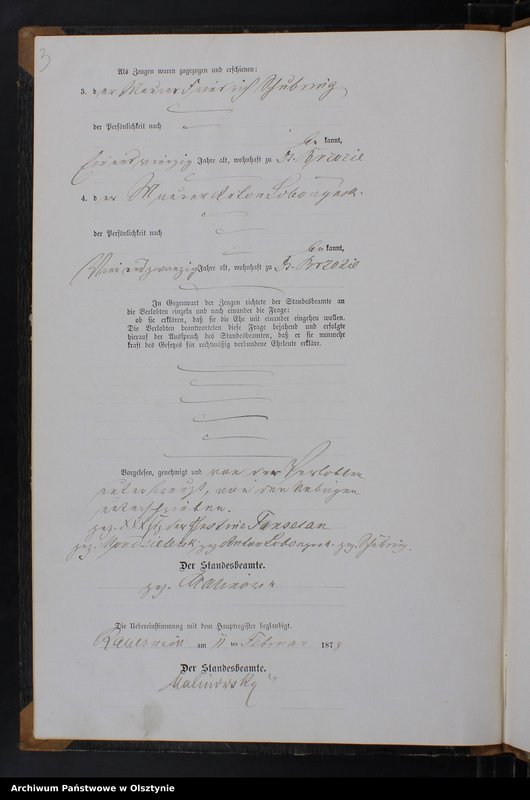 3
Als Zeugen waren zugezogen und erschienen:
3. der Maurer Friedrich Schubring
der Persönlichkeit nach
be kannt,
Ein und vierzig Jahre alt, wohnhaft zu Gr. Brzozie
4. der Maurer Anton
der Persönlichkeit nach
be kannt,
Jahre alt, wohnhaft zu Gr. Brzozie
In Gegenwart der Zeugen richtete der Standesbeamte an
die Verlobten einzeln und nach einander die Frage:
ob sie erklären, daß sie die Ehe mit einander eingehen wollen.
Die Verlobten beantworteten diese Frage bejahend und erfolgte
hierauf der Ausspruch des Standesbeamten, daß er sie nunmehr
kraft des Gesetzes für rechtmäßig verbundene Eheleute erkläre.
Vorgelesen, genehmigt und von den Verlobten
unterkreuzt, von den Uebrigen
unterschrieben.
gez. XXX der
gez. gez. Anton gez. Schubring.
Der Standesbeamte.
gez.
Die Uebereinstimmung mit dem Hauptregister beglaubigt.
am 11 ten Februar 187
Der Standesbeamte.
Malinowsky
Archiwum Państwowe w Olsztynie